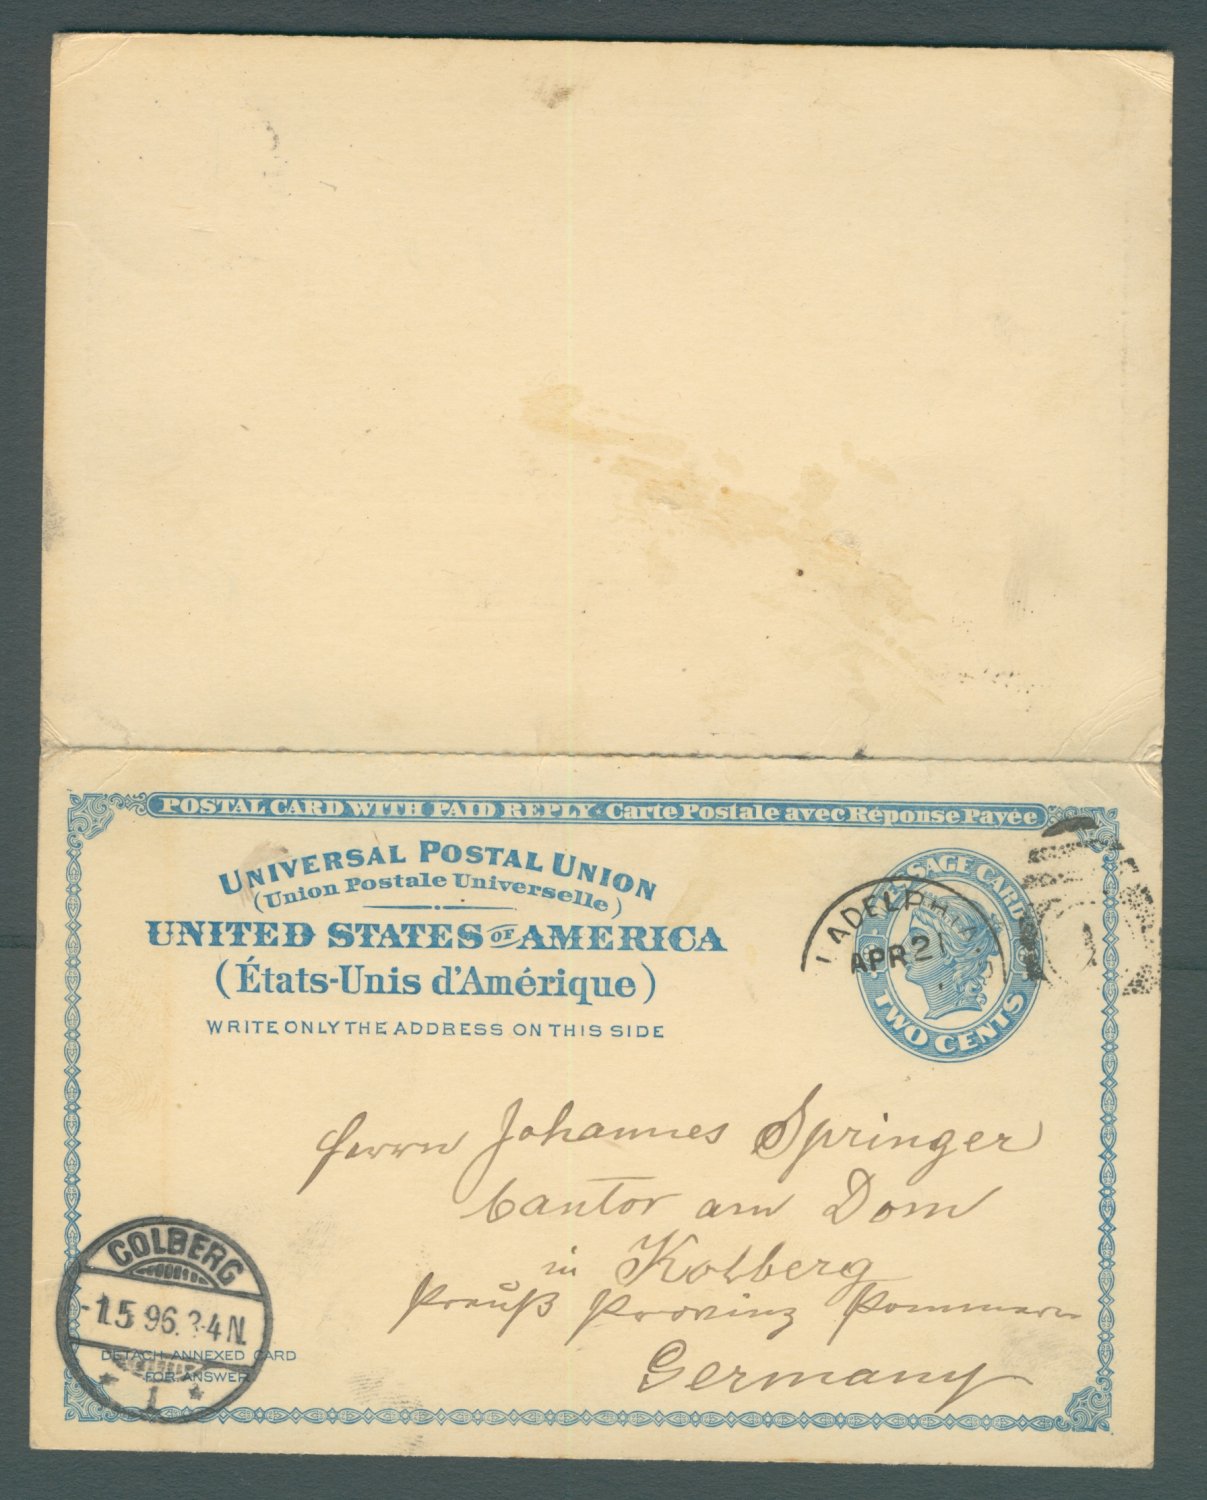 POSTAL CARD WITH PAID REPLY · Carte Postale avec Réponse Payée
UNIVERSAL POSTAL UNION
(Union Postale Universelle)
UNITED STATES OF AMERICA
(États-Unis d'Amérique)
WRITE ONLY THE ADDRESS ON THIS SIDE
SAGE CARD
TWO CENTS
LADELPHIA
APR 21
Herrn Johannes Springer
Cantor am Dom
in Kolberg
Preuß Provinz Pommern
Germany
COLBERG
-1.5 96. 3-4 N.
* 1 *
DETACH ANNEXED CARD
FOR ANSWER